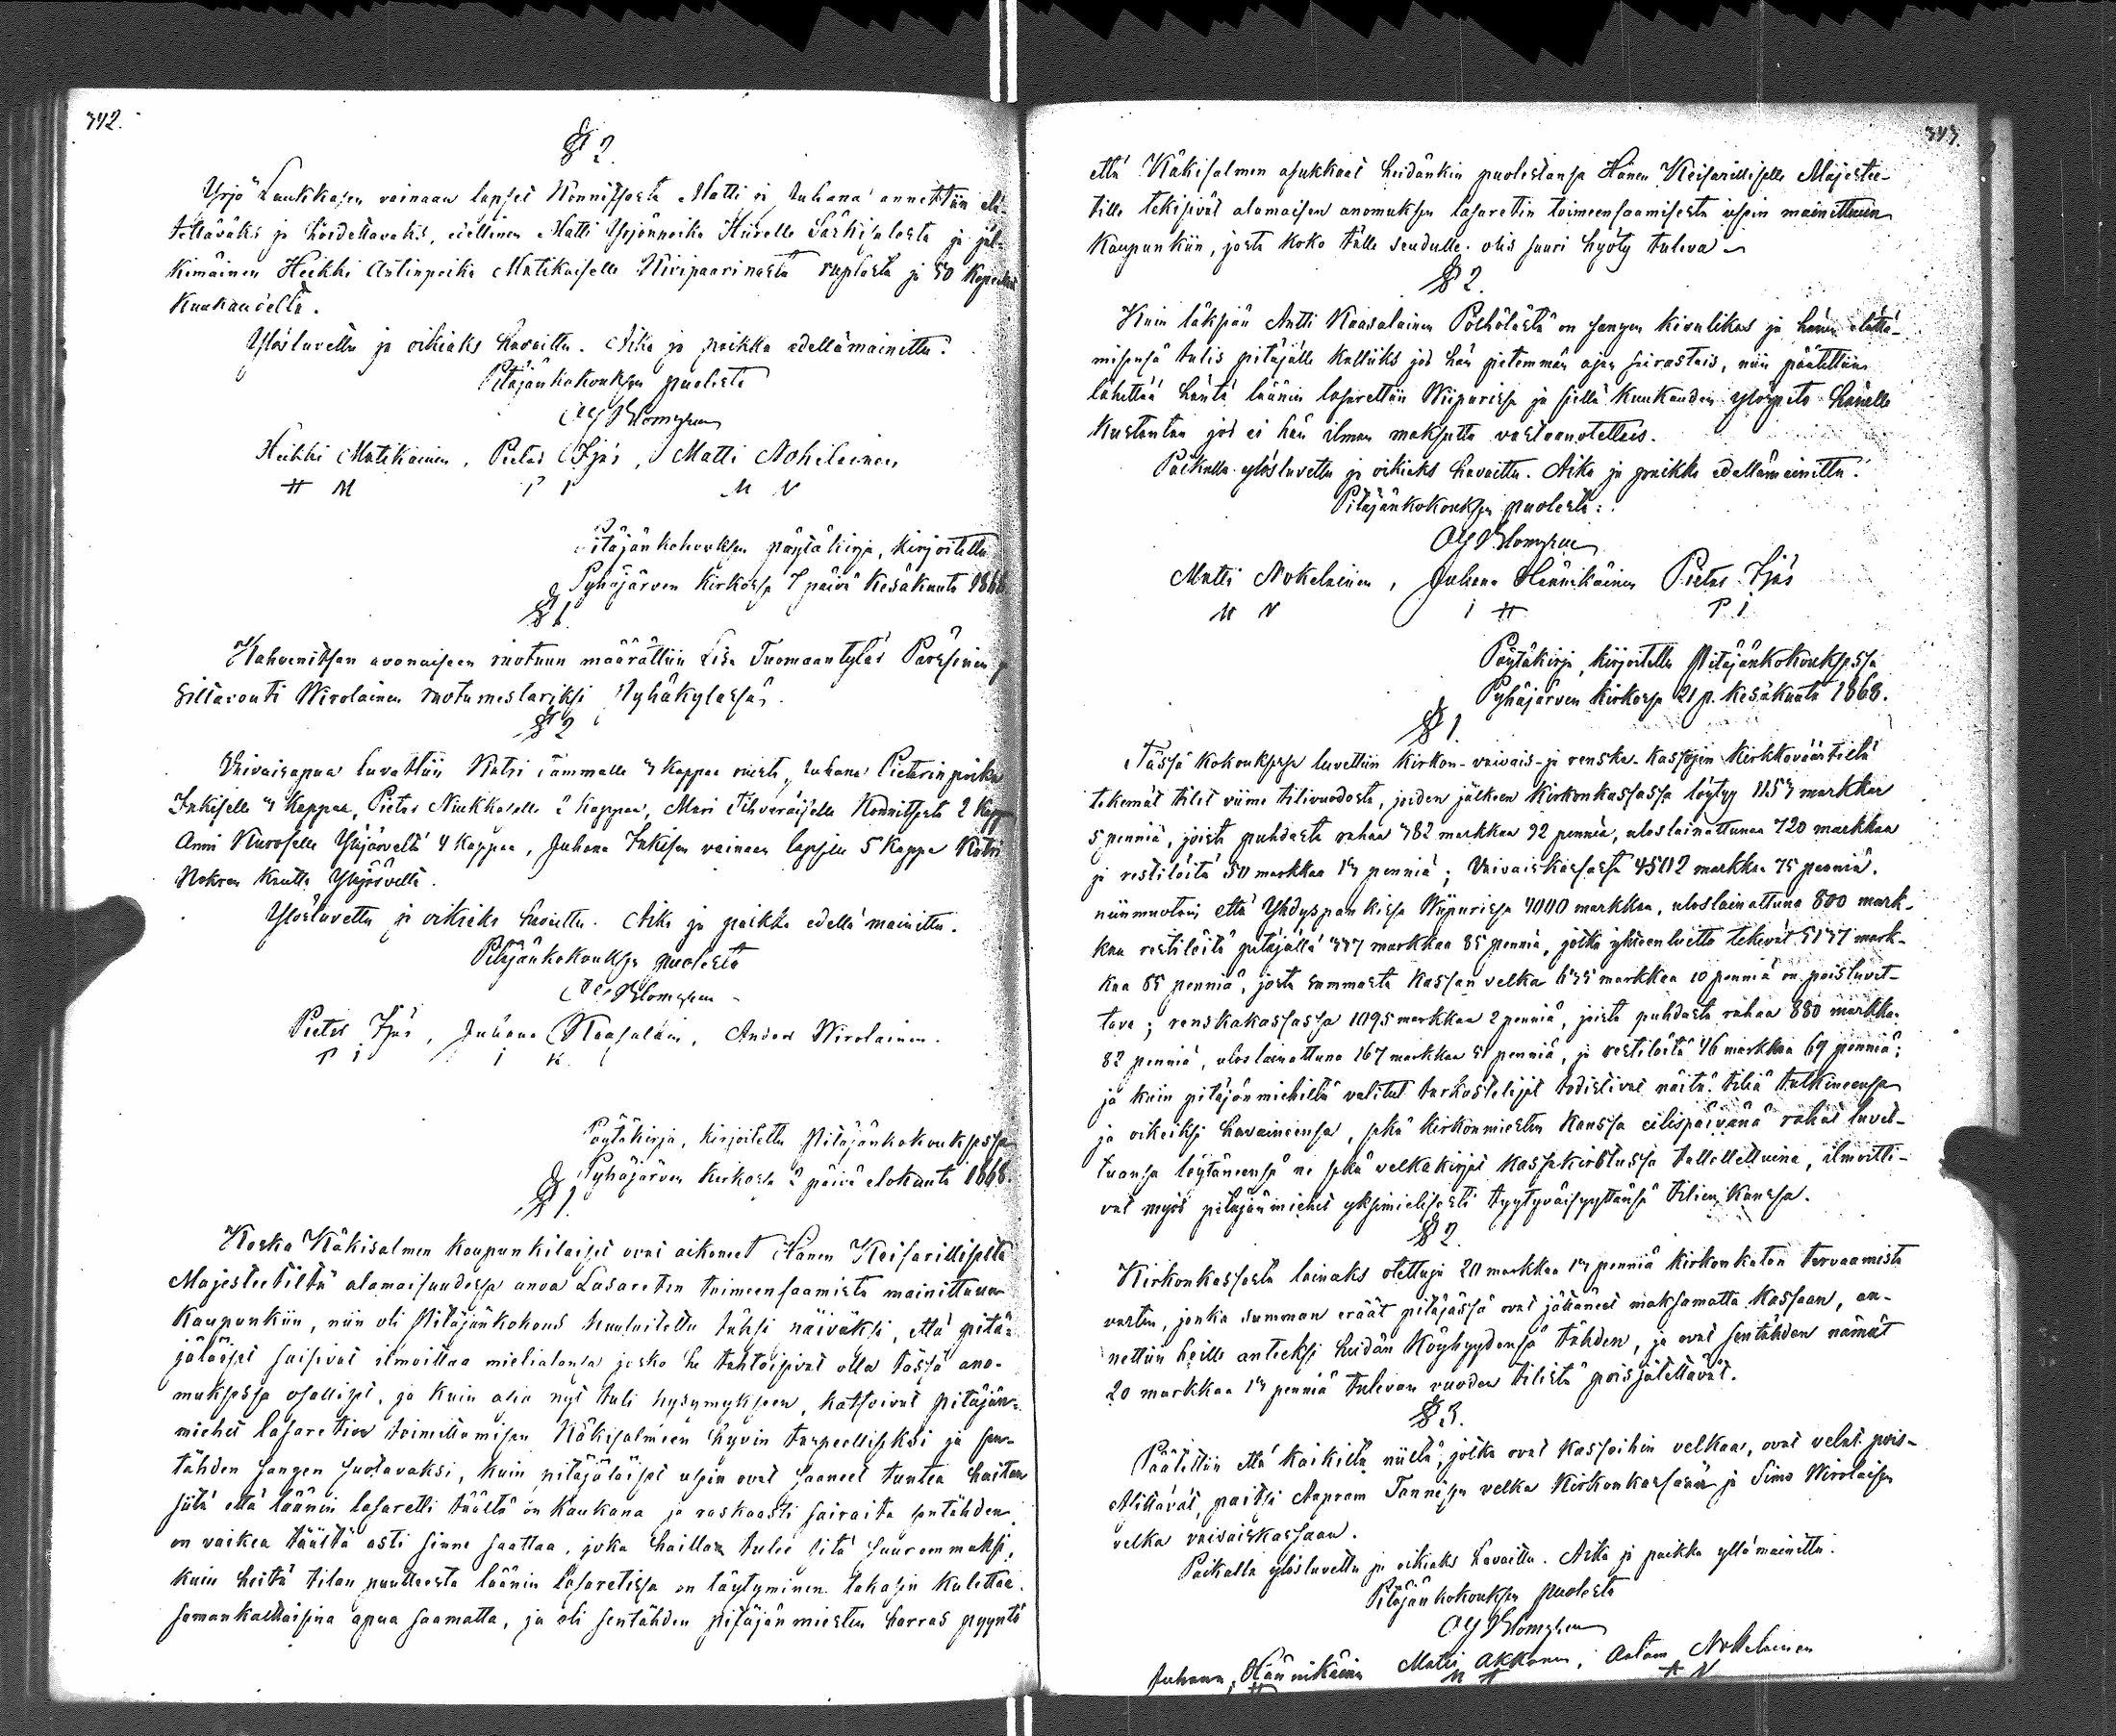 342.
§ 2.
Yrjö Laukkasen vainaan lapset Konnitsosta Matti ja Juhana annettiin elä-
tettäväks ja hoidettavaks, edellinen Matti Yrjönpoika Hiirelle Särkisalosta ja jäl-
kimäinen Heikki Antinpoika Matikaiselle Kiriparinasta ruplasta ja 50 kopeekka
Kuukaudelta.
Ylösluvettu ja oikiaks havaittu. Aika ja paikka edellämainittu.
Pitäjänkokouksen puolesta
Blomgren
Heikki Matikainen, Pietar Ijäs, Matti Nokelainen
H M P I M N
Pitäjänkokouksen pöytäkirja, kirjoitettu
Pyhäjärven kirkossa 7 päivä Kesäkuuta 1868
§ 1.
Kahvenitsan avonaiseen ruotuun määrättiin Liisa Tuomaantytär Pärssinen ja
Siltavouti Wirolainen ruotumestariksi Pyhäkylässä.
§ 2
Vaivaisapua luvattiin Katri Tammelle 3 kappaa ruista, Juhana Pietarinpoika
Inkiselle 3 kappaa, Pietar Niukkaselle 2 kappaa, Mari Tihveräiselle Konnitsosta 2 kapp
Anni Kuroselle Yläjärveltä 4 kappaa, Juhana Inkisen vainaan lapsille 5 kappa Katri
Nokran kautta Yläjärveltä.
Ylösluvettu ja oikiaks havaittu. Aika ja paikka edellä mainittu.
Pitäjänkokouksen puolesta
Blomgren
Pietar Ijäs, Juhana Kaasalain, Anders Wirolainen.
P I I K
Pöytäkirja, kirjoitettu Pitäjänkokouksessa
Pyhäjärven kirkossa 2 päivä elokuuta 1868.
§ 1.
Koska Käkisalmen kaupunkilaiset ovat aikoneet Hänen Keisarilliselta
Majesteetiltä alamaisuudessa anoa Lasaretin toimeensaamista mainittuun
Kaupunkiin, niin oli Pitäjänkokous kuulutettu täksi päiväksi, että pitä-
jäläiset saisivat ilmoittaa mielialansa josko he tahtoisivat olla tässä ano-
muksessa osalliset, ja kuin asia nyt tuli kysymykseen, katsoivat pitäjän-
miehet lasaretin toimittamisen Käkisalmeen hyvin tarpeelliseksi ja sen-
tähden sangen suotavaksi, kuin pitäjäläiset usein ovat saaneet tuntea haitan
siitä että läänin lasaretti täältä on kaukana ja raskaasti sairaita sentähden
on vaikea täältä asti sinne saattaa, joka haitta tulee sitä suuremmaksi,
kuin heitä tilan puutteesta läänin lasaretissa on täytyminen takasin kulettaa
samankaltaisina apua saamatta, ja oli sentähden pitäjänmiesten harras pyyntö
343.
että Käkisalmen asukkaat heidänkin puolestansa Hänen Keisarilliselle Majestee-
tille tekisivät alamaisen anomuksen lasaretin toimeensaamisesta usein mainittuun
Kaupunkiin, josta koko tälle seudulle olis suuri hyöty tuleva
§ 2.
Kuin läksiän Antti Kaasalainen Pöhölästä on sangen kivulikas ja hänen elättä-
misensä tulis pitäjälle kalliiks jos hän pitemmän ajan sairastais, niin päätettiin
lähettää häntä läänin lasarettiin Wiipurissa ja siellä kuukauden ylöspito hänelle
kustantaa jos ei hän ilman maksutta vastaanotettais.
Paikalla ylösluvettu ja oikiaks havaittu. Aika ja paikka edellämainittu.
Pitäjänkokouksen puolesta:
Blomgren
Matti Nokelainen, Juhana Hännikäinen Pietar Ijäs
M N I H P I
Pöytäkirja, kirjoitettu Pitäjänkokouksessa
Pyhäjärven kirkossa 21 p. kesäkuuta 1868.
§ 1.
Tässä kokouksessa luvettiin kirkon- vaivais- ja renska-kassojen kirkkoväärtieltä
tekemät tilit viime tilivuodosta, joiden jälkeen kirkonkassassa löytyy 1153 markkaa
5 penniä, joista puhdasta rahaa 382 markkaa 92 penniä, uloslainattunaa 720 markkaa
ja restilöitä 50 markkaa 13 penniä; Vaivaiskassassa 4502 markkaa 75 penniä.
niinmuotoin että Yhdyspankissa Wiipurissa 4000 markkaa, uloslainattuna 800 mark-
kaa restilöitä pitäjällä 337 markkaa 85 penniä, jotka yhteenluettu tekevät 5137 mark-
kaa 85 penniä, josta summasta kassan velka 635 markkaa 10 penniä on poisluvet-
tava; renskakassassa 1095 markkaa 2 penniä, joista puhdasta rahaa 880 markkaa
82 penniä, uloslainattuna 167 markkaa 51 penniä, ja restilöitä 46 markkaa 69 penniä;
ja kuin pitäjänmiehiltä valitut tarkastelijat todistivat näitä tiliä tutkineensa
ja oikeiksi havaineensa, sekä kirkonmiesten kanssa eilispäivänä rahat luvet-
tuansa löytäneensä ne sekä velkakirjat kassakirstussa tallellettuina, ilmoitti-
vat myös pitäjänmiehet yksimielisesti tyytyväisyyttänsä tilien kanssa.
§ 2.
Kirkonkassasta lainaks otettuja 20 markkaa 13 penniä kirkonkaton tervaamista
varten, jonka summan eräät pitäjässä ovat jättäneet maksamatta kassaan, an-
nettiin heille anteeksi heidän köyhyydensä tähden, ja ovat sentähden nämät
20 markkaa 13 penniä tulevan vuoden tilistä poisjätettävät.
§ 3.
Päätettiin että kaikilta niiltä, jotka ovat kassoihin velkaa, ovat velat pois-
otittavat, paitsi Aapram Tannisen velka Kirkonkassaan ja Simo Wirolaisen
velka vaivaiskassaan.
Paikalla ylösluvettu ja oikiaks havaittu. Aika ja paikka yllämainittu.
Pitäjänkokouksen puolesta
Blomgren
Juhana Hännikäinen Matti Akkanen, Aatam Nokelainen
H M A A N